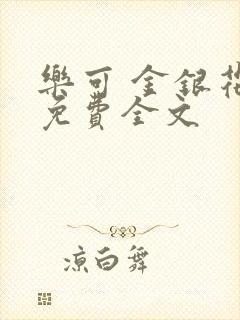 樂可 金銀花
免費全文
涼白舞